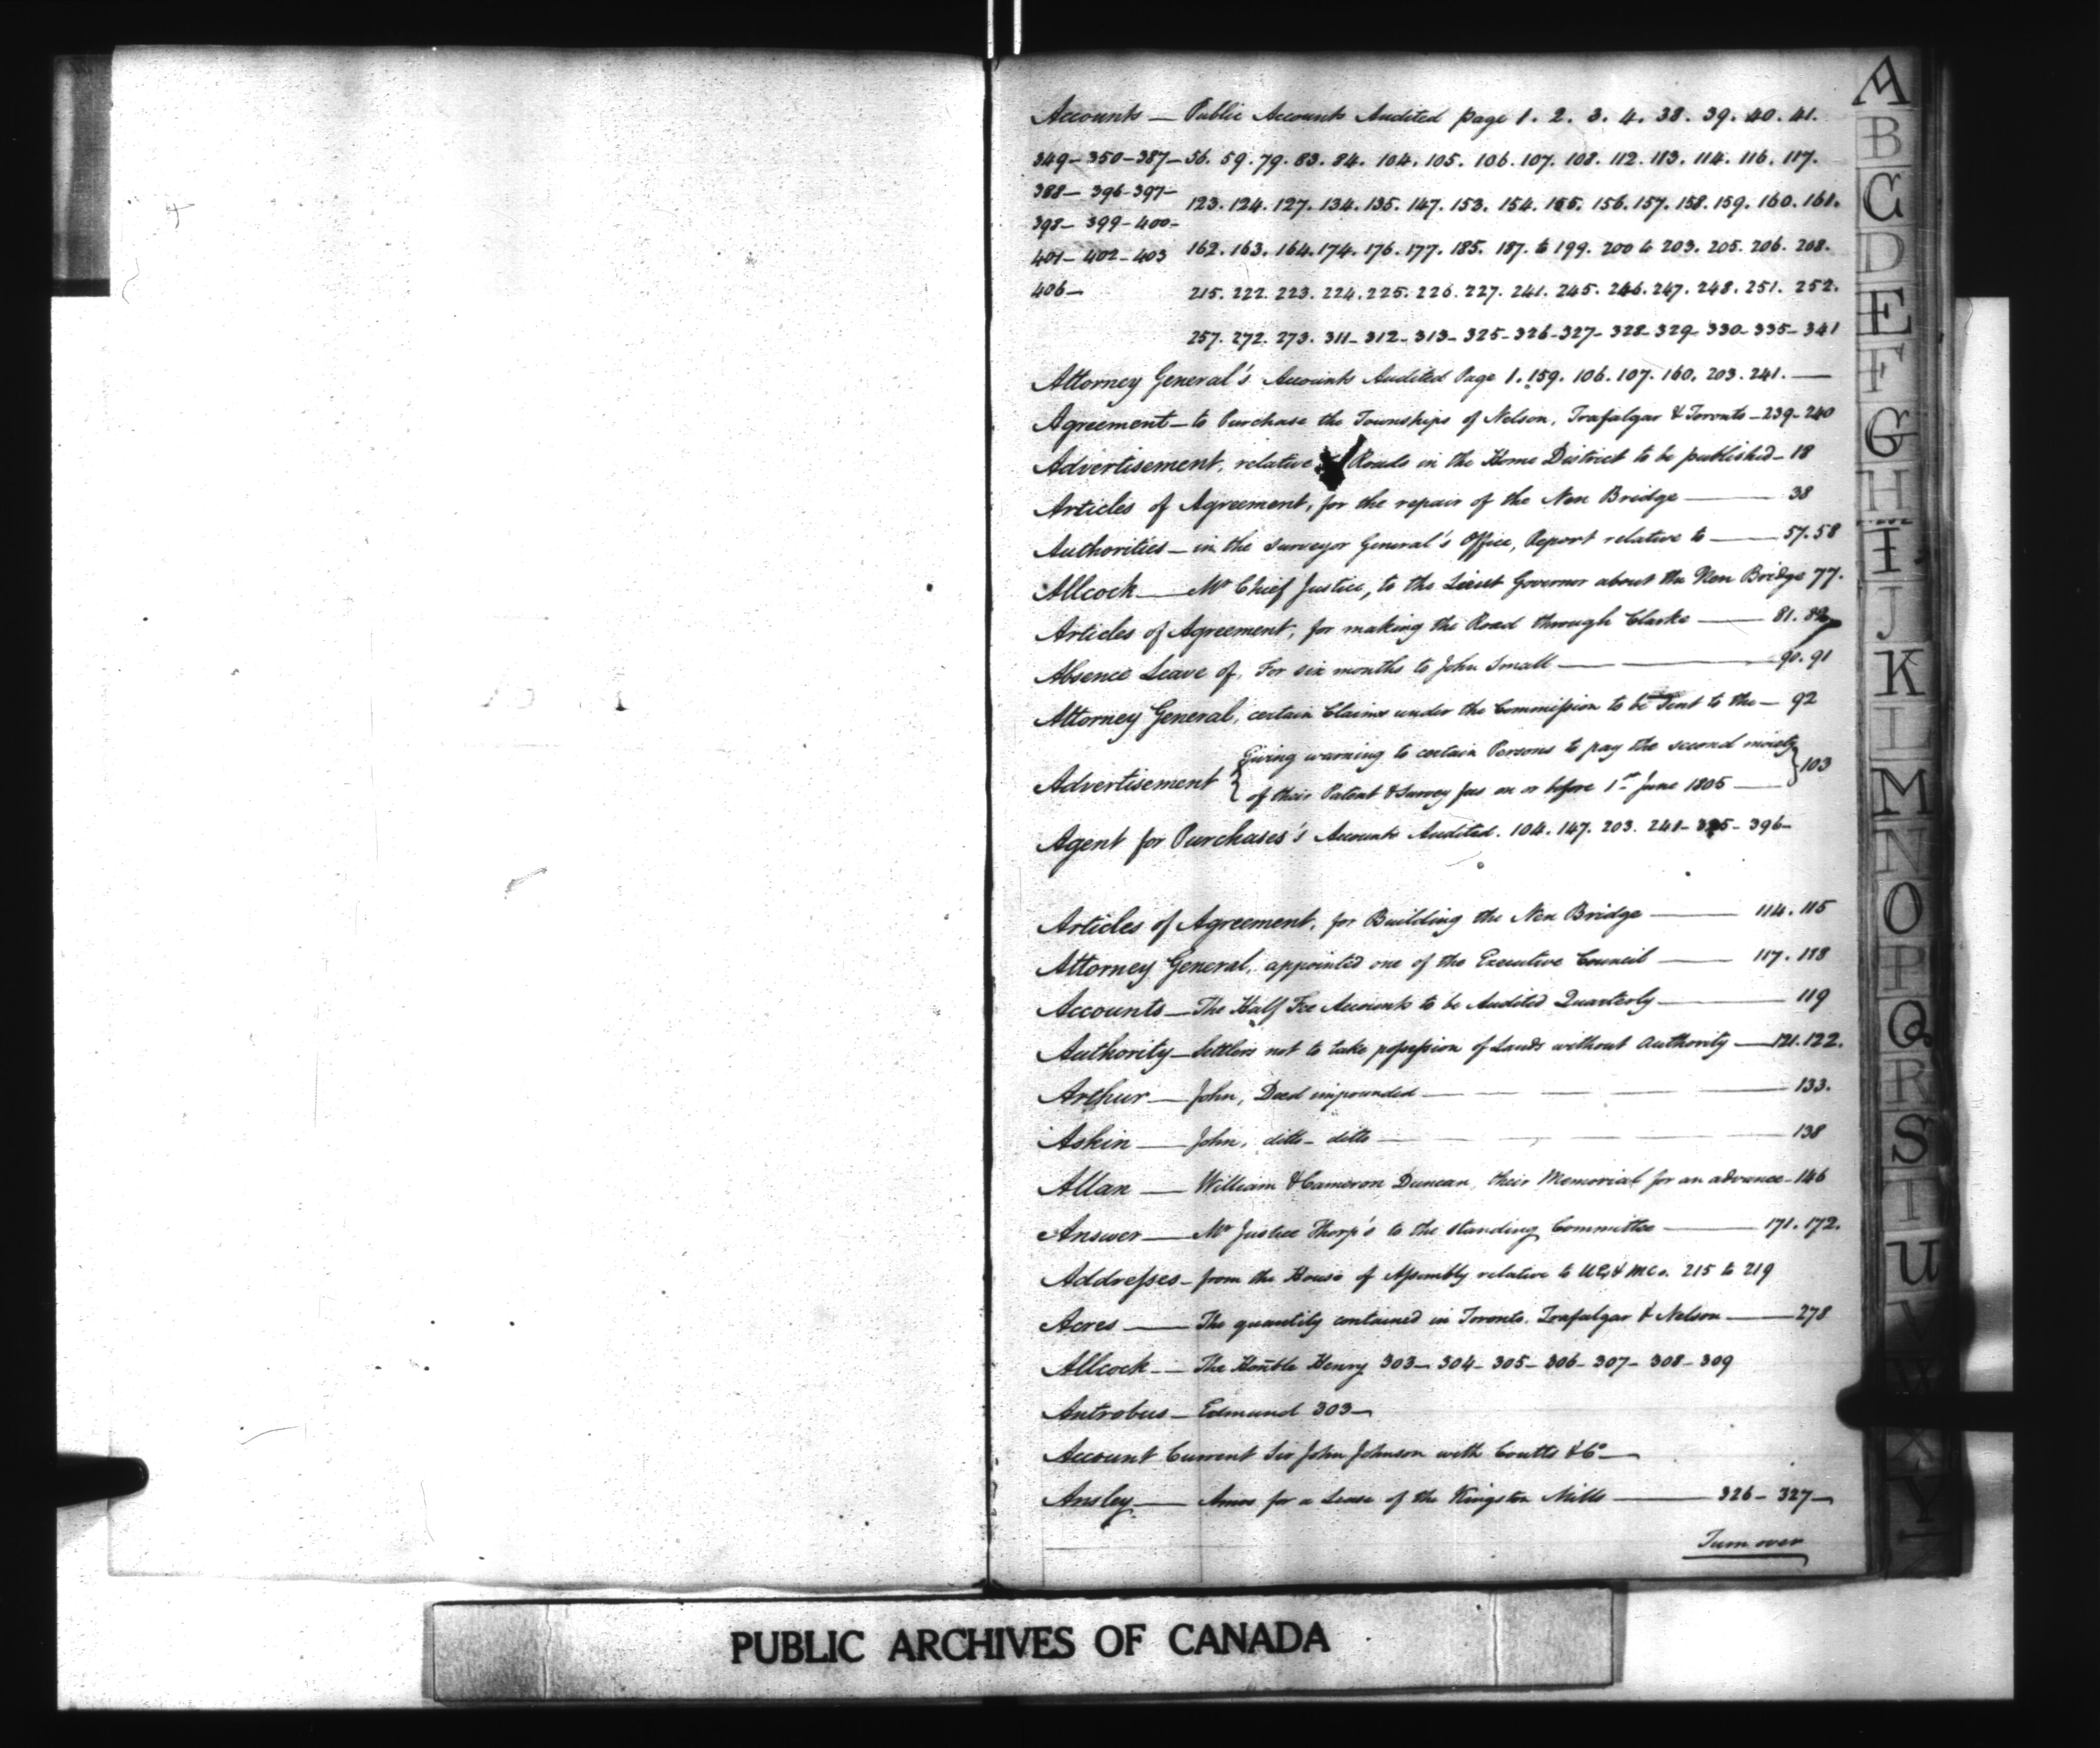 Accounts — Public Accounts Audited page 1. 2. 3. 4. 38. 39. 40. 41.
349 – 350 – 387 – 56. 59. 79. 83. 84. 104. 105. 106. 107. 108. 112. 113. 114. 116. 117.
388 – 396 – 397 –
123. 124. 127. 134. 135. 147. 153. 154. 155. 156. 157. 158. 159. 160. 161.
398 – 399 – 400 –
401 – 402 – 403 162. 163. 164. 174. 176. 177. 185. 187. to 199. 200 to 203. 205. 206. 208.
406 – 215. 222. 223. 224. 225. 226. 227. 241. 245. 246. 247. 248. 251. 252.
257. 272. 273. 311 – 312 – 313 – 325 – 326 – 327 – 328 – 329 – 330 – 335 – 341
Attorney General's Accounts Audited Page 1. 159. 106. 107. 160. 203. 241. —
Agreement — to Purchase the Townships of Nelson, Trafalgar & Toronto – 239 – 240
Advertisement, relative Roads in the Home District to be published – 18
Articles of Agreement, for the repair of the New Bridge — 38
Authorities — in the Surveyor General's Office, Report relative to — 57. 58
Allcock — Mr Chief Justice, to the Lieut Governor about the New Bridge 77.
Articles of Agreement, for making the Road through Clarke — 81. 82
Absence Leave of, For six months to John Small — 90. 91
Attorney General, certain Claims under the Commission to be sent to the — 92
Giving warning to certain Persons to pay the second moiety
Advertisement { } 103
of their Patent & Survey fees on or before 1st June 1805 —
Agent for Purchases's Accounts Audited. 104. 147. 203. 241 – – 396 –
Articles of Agreement, for Building the New Bridge — 114. 115
Attorney General, appointed one of the Executive Council — 117. 118
Accounts — The Half Fee Accounts to be Audited Quarterly — 119
Authority — Settlers not to take possession of Lands without authority — 121. 122.
Arthur — John, Deed impounded — 133.
Askin — John, ditto – ditto — 138
Allan — William & Cameron Duncan, their Memorial for an advance – 146
Answer — Mr Justice Thorp's to the standing Committee — 171. 172.
Addresses – from the House of Assembly relative to UE & MCs. 215 to 219
Acres — The quantity contained in Toronto, Trafalgar & Nelson — 278
Allcock — The Honble Henry 303 – 304 – 305 – 306 – 307 – 308 – 309
Antrobus — Edmund 303 –
Account Current Sir John Johnson with Coutts & Co —
Ansley — Amos for a Lease of the Kingston Mills — 326 – 327 –
Turn over
A
B
C
D
E
F
G
H
I
J
K
L
M
N
O
P
Q
R
S
T
U
V
W
X
Y
Z
PUBLIC ARCHIVES OF CANADA